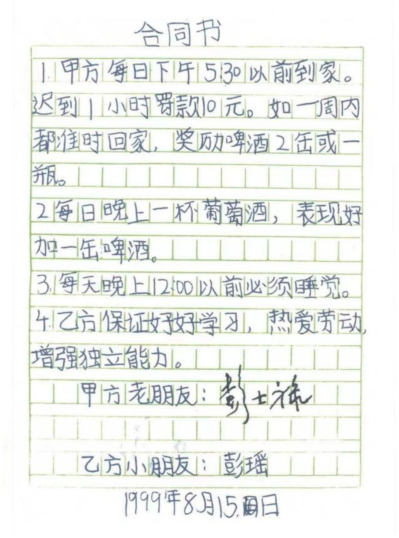 合同书
1.甲方每日下午5:30以前到家。
迟到1小时罚款10元。如一周内
都准时回家，奖励啤酒2缶或一
瓶。
2每日晚上一杯葡萄酒，表现好
加一缶啤酒。
3.每天晚上12:00以前必须睡觉。
4.乙方保证好好学习，热爱劳动，
增强独立能力。
甲方老朋友：彭士禄
乙方小朋友：彭瑶
1999年8月15日